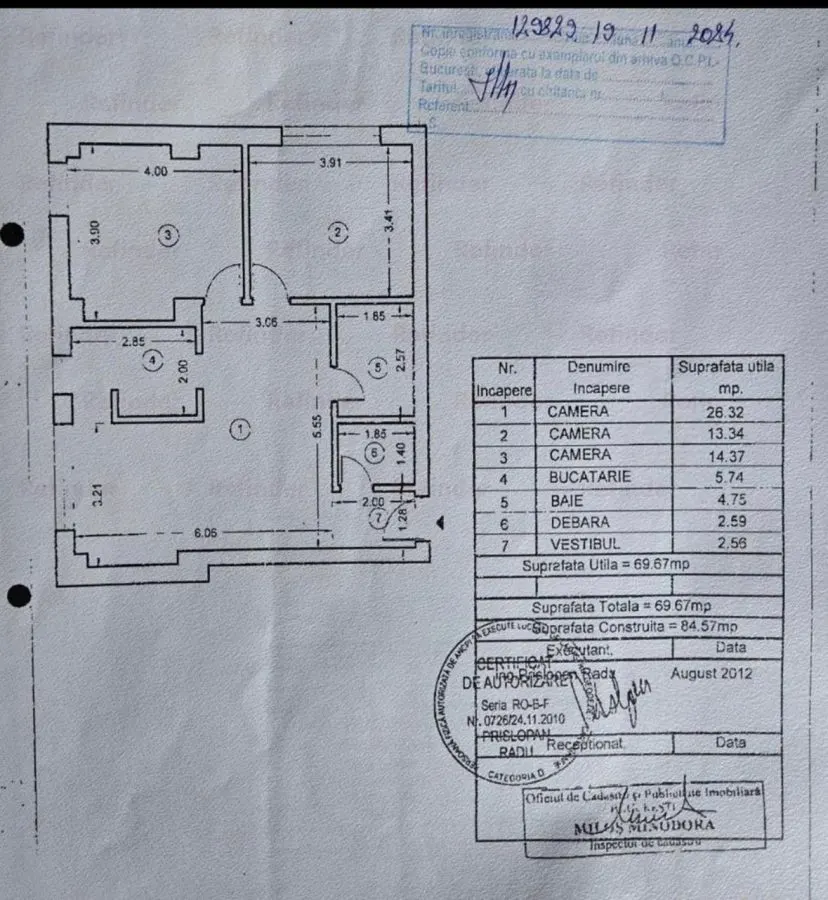 129829 19 11 2024.
Nr. inregistrare
Copie conforma cu exemplarul din arhiva O.C.P.I.-
Bucuresti, la data de
Tariful cu chitanta nr.
Referent
L.S.
4.00
3.91
3.90
3
2
3.41
3.06
1.85
2.85
4
2.00
5
2.57
1
5.55
1.85
6
1.40
3.21
2.00
7
1.28
6.06
Nr. Incapere
Denumire Incapere
Suprafata utila mp.
1 CAMERA 26.32
2 CAMERA 13.34
3 CAMERA 14.37
4 BUCATARIE 5.74
5 BAIE 4.75
6 DEBARA 2.59
7 VESTIBUL 2.56
Suprafata Utila = 69.67mp
Suprafata Totala = 69.67mp
Suprafata Construita = 84.57mp
Executant, Data
Ing. Prislopan Radu August 2012
CERTIFICAT
DE AUTORIZARE
Seria RO-B-F
Nr. 0726/24.11.2010
PRISLOPAN
RADU
CATEGORIA D
Receptionat, Data
Oficiul de Cadastru şi Publicitate Imobiliară
MILOŞ MINODORA
Inspector de cadastru
Refinder